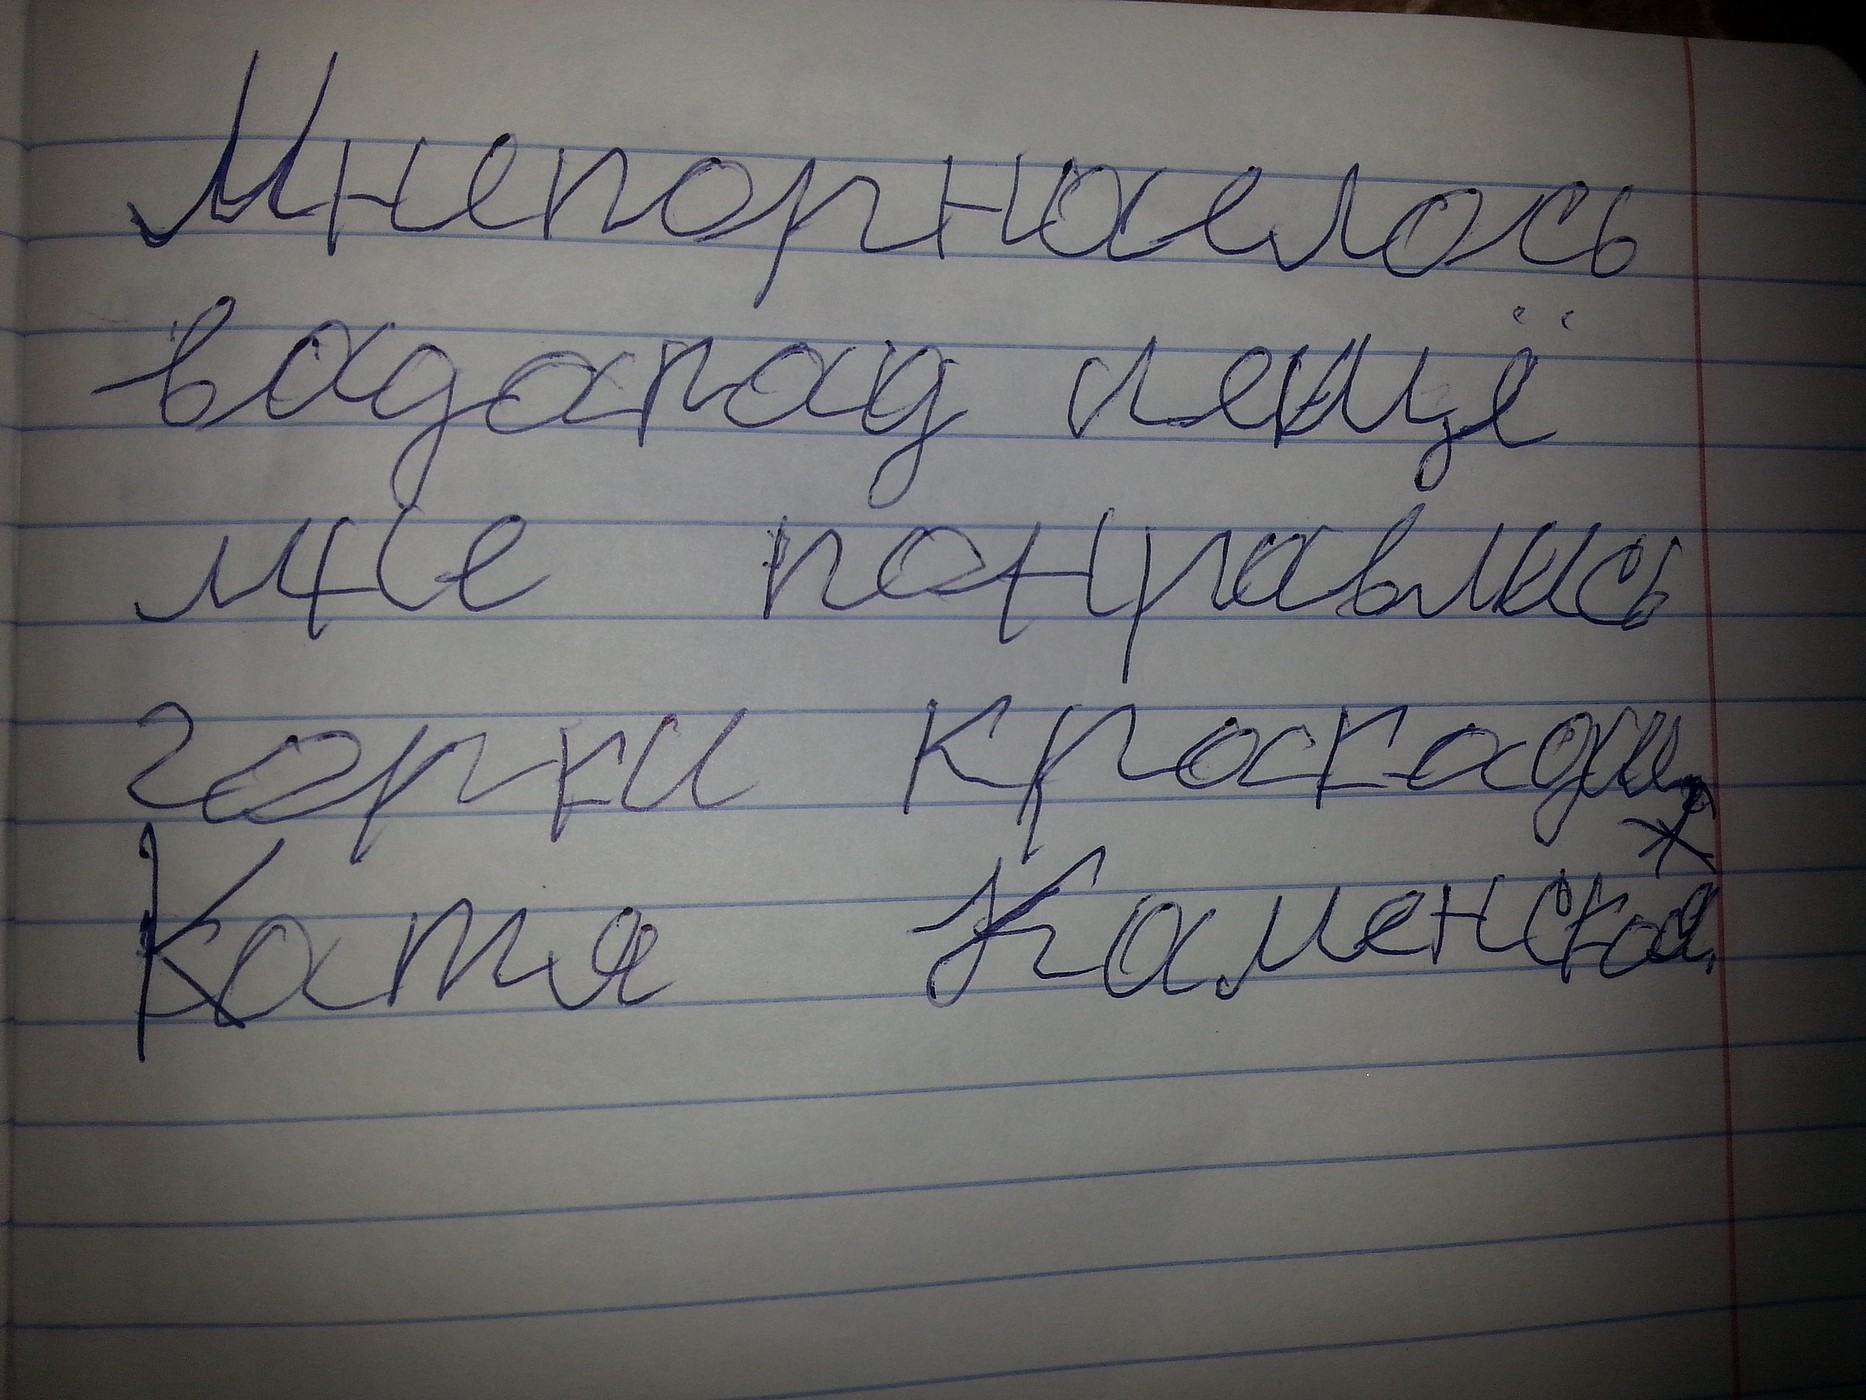 Мнепорнаелось
вадапад иещё
мне понравлись
горки кракади
Катя Каменская